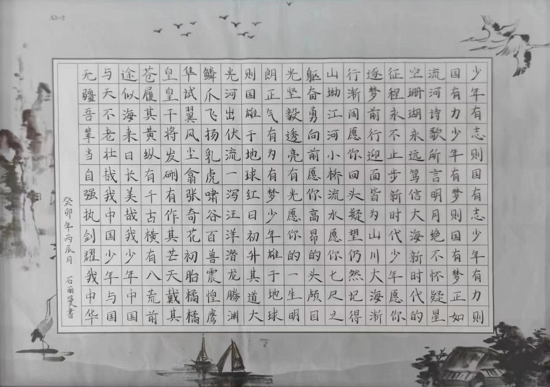 少年有志则国有志少年有力则
国有力少年有梦则国有梦正如
流河诗歌所言明月绝不怀疑星
空珊湖永远笃信大海新时代的
征程永不止步新时代少年愿你
逐梦前行迎面皆为山川大海渐
行渐阔愿你回头疑望仍然记得
山坳江河小桥流水愿你七尺之
躯奋勇向前愿你高昂的头颅目
光坚毅透亮有光愿你的一生明
朗正气有为有梦少年雄于地球
则国雄于地球红日初升其道大
光河出伏流一泻汪洋潜龙腾渊
鳞爪飞扬乳虎啸谷百兽震惶鹰
隼试翼风尘翕张奇花初胎矞矞
皇皇干将发硎有作其芒天戴其
苍履其黄纵有千古横有八荒前
途似海来日长美哉我少年中国
与天不老壮哉我中国少年与国
无疆吾辈当自强执剑耀我中华
癸卯年丙辰月 石丽书